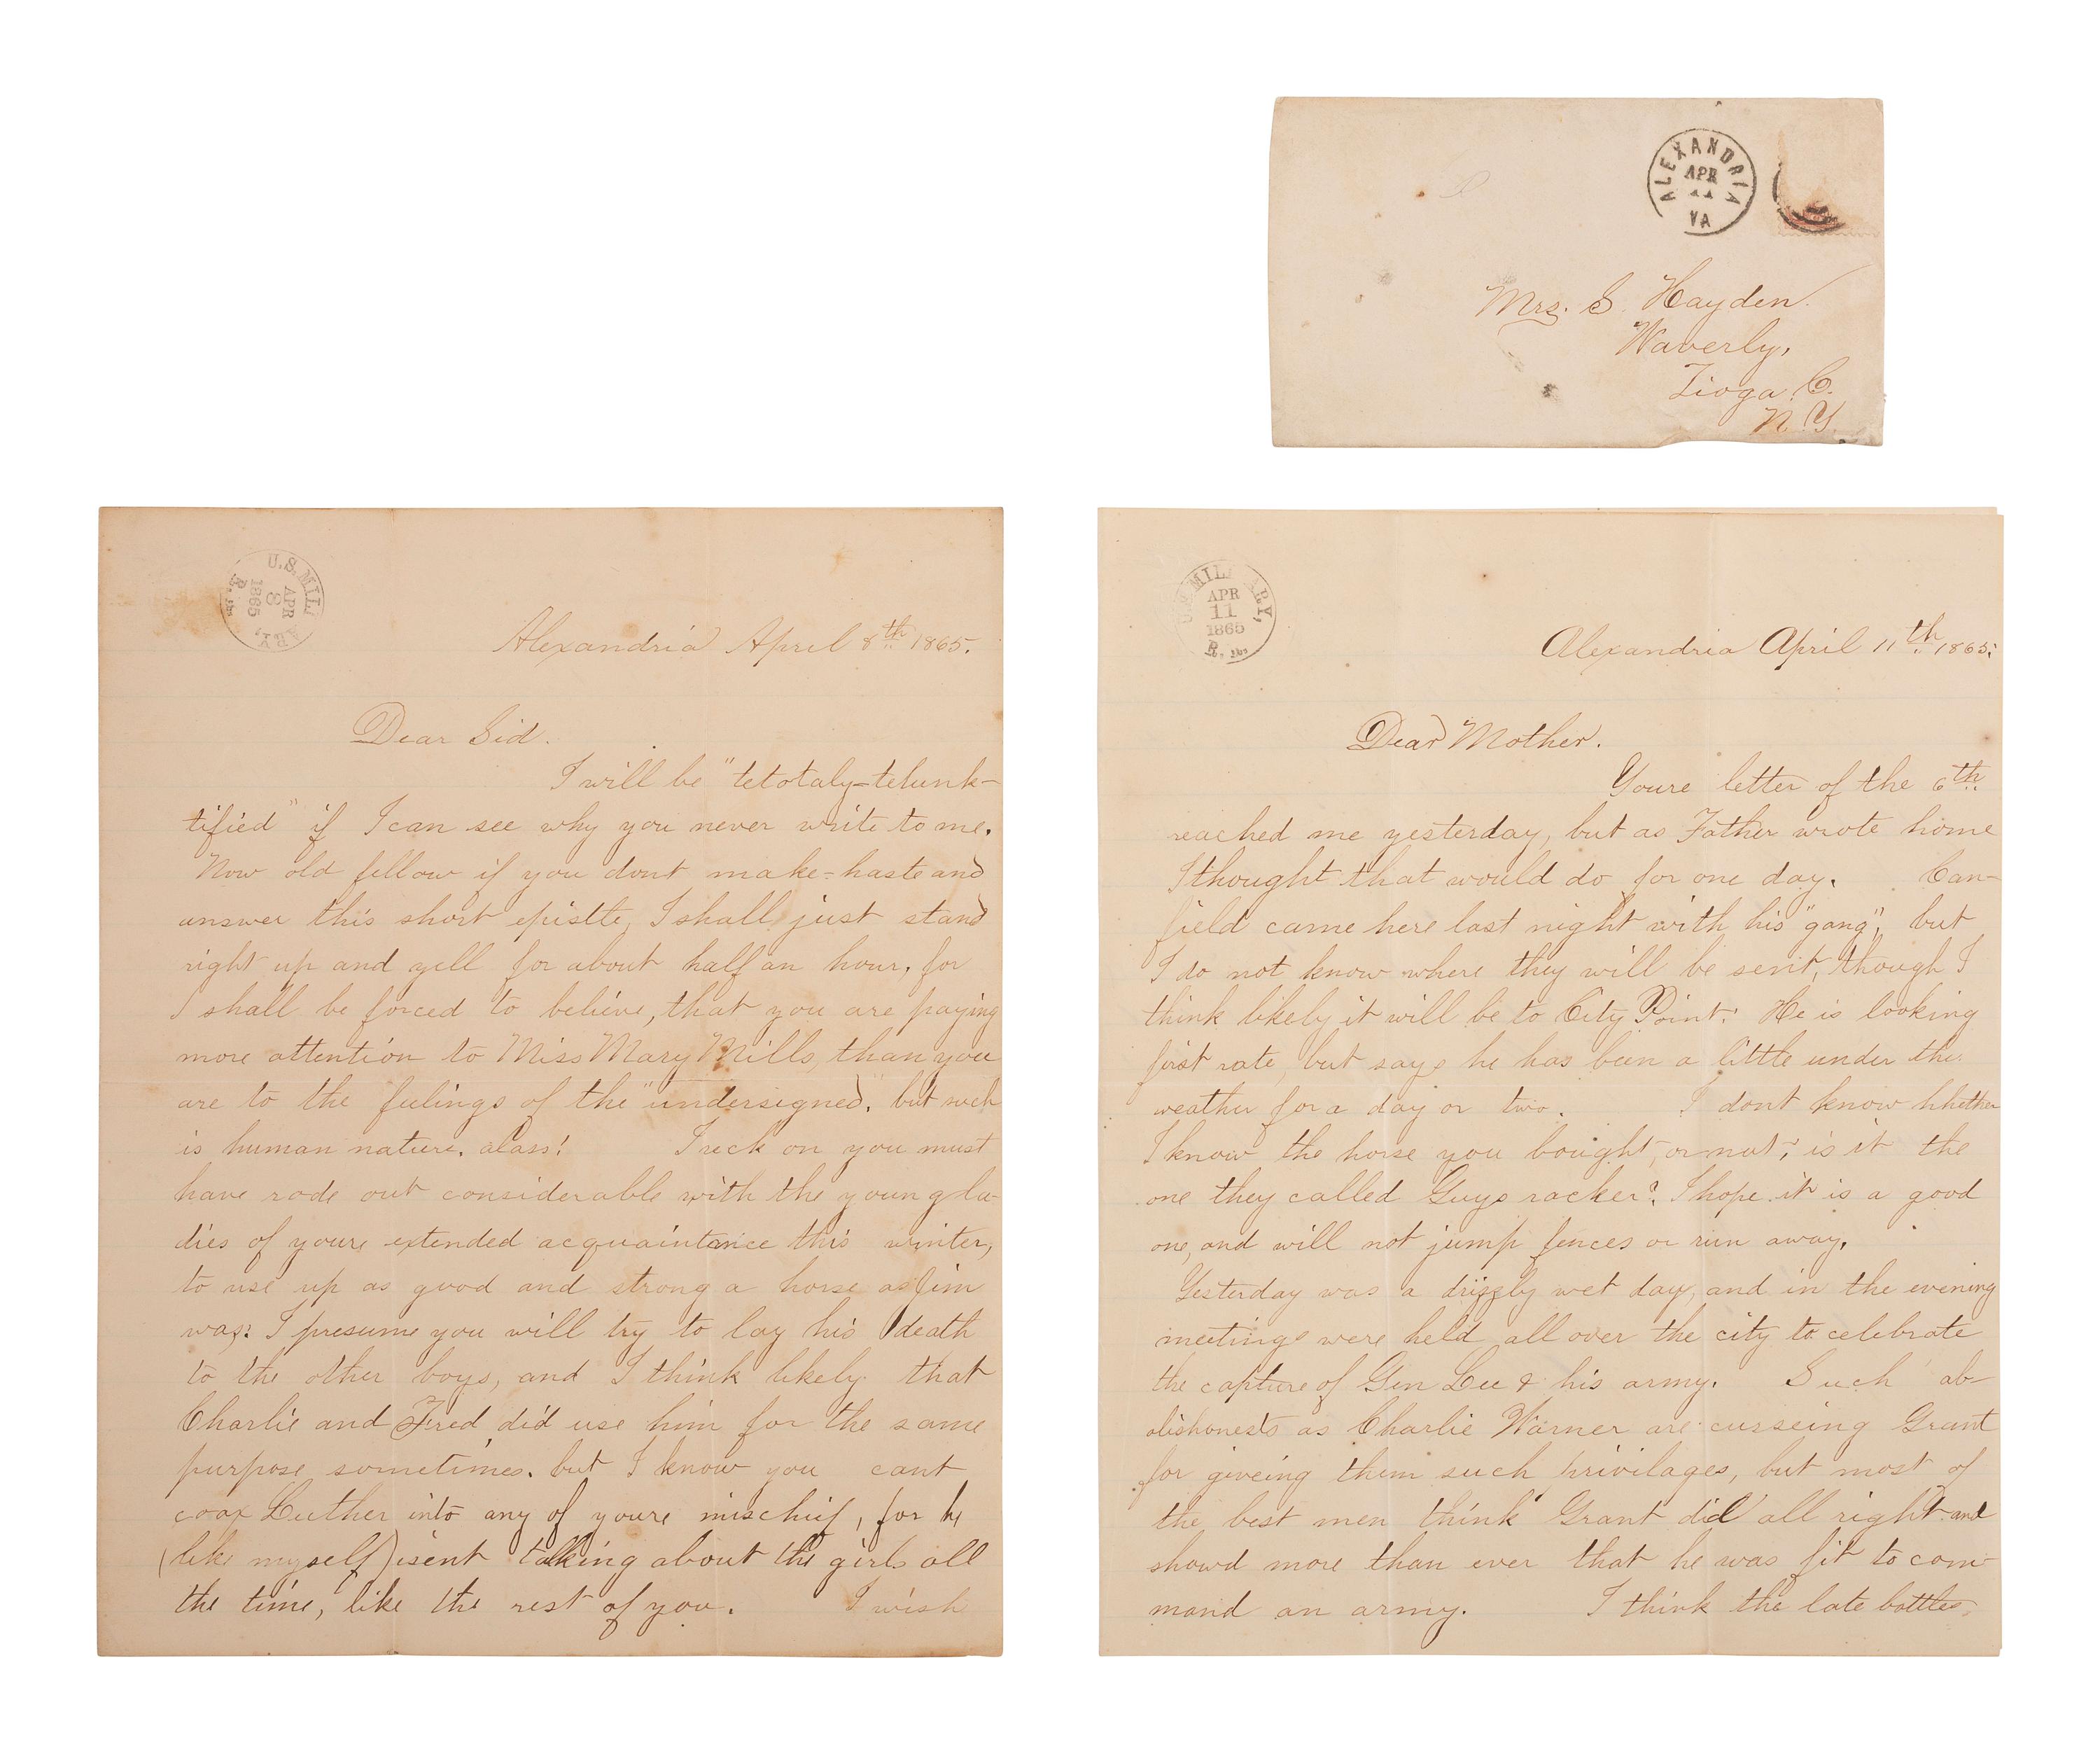 ALEXANDRIA
APR
11
VA
Mrs. S. Hayden.
Waverly,
Tioga. C.
N. Y.
U.S. MILITARY,
APR
8
1865
R. Rs.
Alexandria April 8th 1865.
Dear Sid.
I will be "tetotaly-telunk-
tified" if I can see why you never write to me.
Now old fellow if you dont make-haste and
answer this short epistle, I shall just stand
right up and yell for about half an hour, for
I shall be forced to believe, that you are paying
more attention to Miss Mary Mills, than you
are to the feelings of the "undersigned." but such
is human nature. alass! I reck on you must
have rode out considerable with the young la-
dies of youre extended acquaintance this winter,
to use up as good and strong a horse as Jim
was: I presume you will try to lay his death
to the other boys, and I think likely that
Charlie and Fred did use him for the same
purpose sometimes. but I know you cant
coax Luther into any of youre mischief, for he
(like myself) isent talking about the girls all
the time, like the rest of you. I wish
U.S. MILITARY,
APR
11
1865
R. Rs.
Alexandria April 11th 1865.
Dear Mother.
Youre letter of the 6th
reached me yesterday, but as Father wrote home
I thought that would do for one day. Can-
field came here last night with his "gang", but
I do not know where they will be sent, though I
think likely it will be to City Point. He is looking
first rate, but says he has been a little under the
weather for a day or two. I dont know whether
I know the horse you bought, or not; is it the
one they called Guys racker? I hope it is a good
one, and will not jump fences or run away.
Yesterday was a drizzly wet day, and in the evening
meetings were held all over the city to celebrate
the capture of Gen Lee & his army. Such ab-
olishonests as Charlie Warner are curseing Grant
for giveing them such privilages, but most of
the best men think Grant did all right and
showd more than ever that he was fit to com-
mand an army. I think the late battles